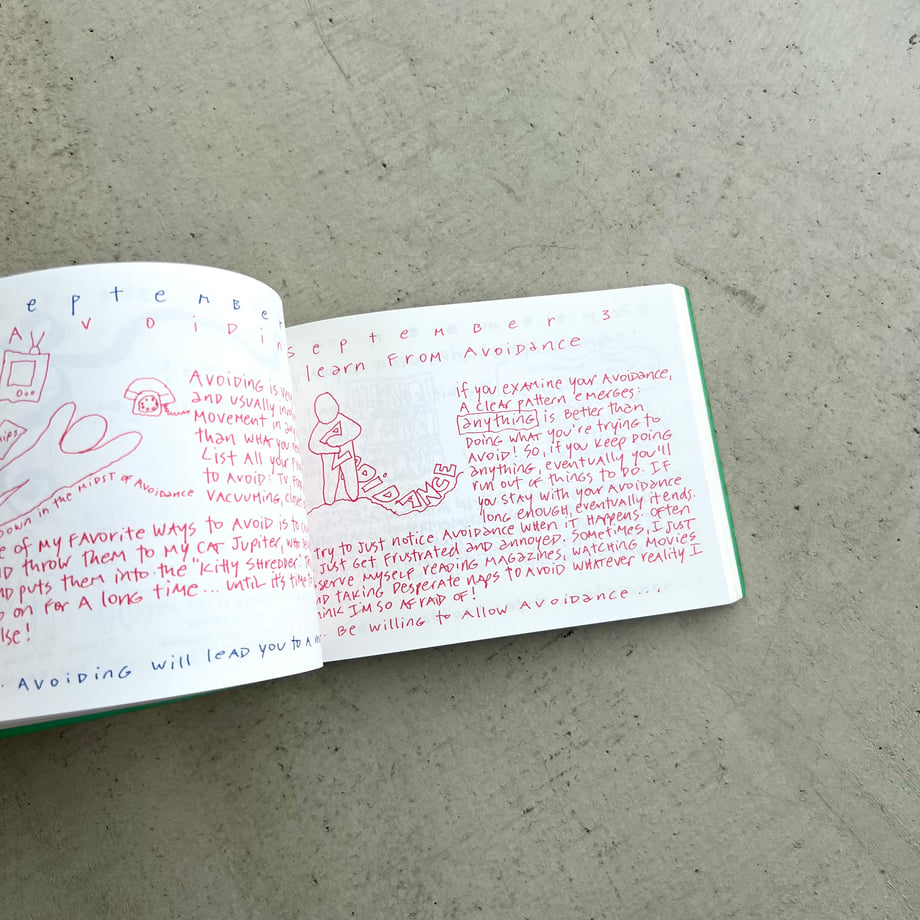 eptember
Avoidin
Avoiding is
and usually
movement in
than what you
List All your
to Avoid: TV,
vacuuming, closet
Down in the midst of Avoidance
of my favorite ways to Avoid is to
throw them to my cat Jupiter, who
puts them into the "Kitty Shredder".
on for A long time... until it's time
lse!
Avoiding will lead you to A
September 3
learn From Avoidance
if you examine your Avoidance,
A clear pattern emerges:
anything is Better than
Doing what you're trying to
Avoid! So, if you keep Doing
anything, eventually you'll
run out of things to do. If
you stay with your Avoidance
long enough, eventually it ends.
AVOIDANCE
try to just notice Avoidance when it happens. Often
I just get frustrated and annoyed. Sometimes, I just
serve myself reading magazines, watching movies
and taking Desperate naps to Avoid whatever reality I
think I'm so Afraid of!
Be willing to Allow Avoidance ....